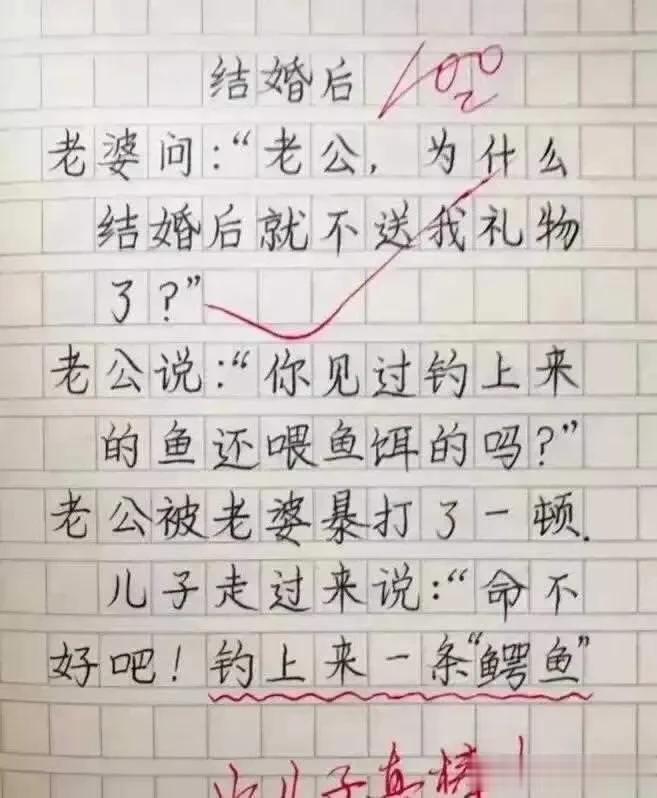 结婚后 100
老婆问:“老公,为什么
结婚后就不送我礼物
了?”
老公说:“你见过钓上来
的鱼还喂鱼饵的吗?”
老公被老婆暴打了一顿.
儿子走过来说:“命不
好吧!钓上来一条“鳄鱼”
儿子真棒!